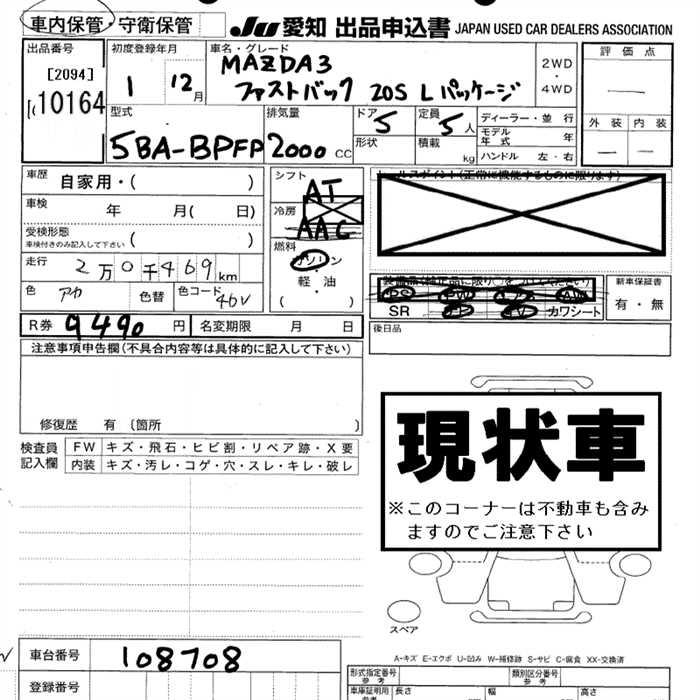 車内保管・守衛保管
JU 愛知 出品申込書 JAPAN USED CAR DEALERS ASSOCIATION
出品番号
[2094]
10164
初度登録年月
1 12月
車名・グレード
MAZDA3
ファストバック 20S Lパッケージ
2WD
・
4WD
評価点
外装 内装
型式
5BA-BPFP
排気量
2000 cc
ドア
5
形状
定員
5人
積載
kg
ディーラー・並行
モデル年式 年
ハンドル 左・右
車歴
自家用・( )
車検
年 月( 日)
受検形態
車検付きのみ記入して下さい ( )
走行
2万0千469km
色 アカ 色替 色コード 46V
シフト
AT
冷房
AAC
燃料
ガソリン
・
軽・油
( )
セールスポイント(正常に機能するものに限ります)
SR
カワシート
新車保証書
有・無
後日品
R券 9490円 名変期限 月 日
注意事項申告欄(不具合内容等は具体的に記入して下さい)
修復歴 有 〔箇所 〕
検査員記入欄
FW キズ・飛石・ヒビ割・リペア跡・X要
内装 キズ・汚レ・コゲ・穴・スレ・キレ・破レ
現状車
※このコーナーは不動車も含み
ますのでご注意下さい
スペア
A-キズ E-エクボ U-凹み W-補修跡 S-サビ C-腐食 XX-交換済
車台番号 108708
登録番号
形式指定番号
参考
類別区分番号
参考
車庫証明用
参考
長さ
幅
高さ